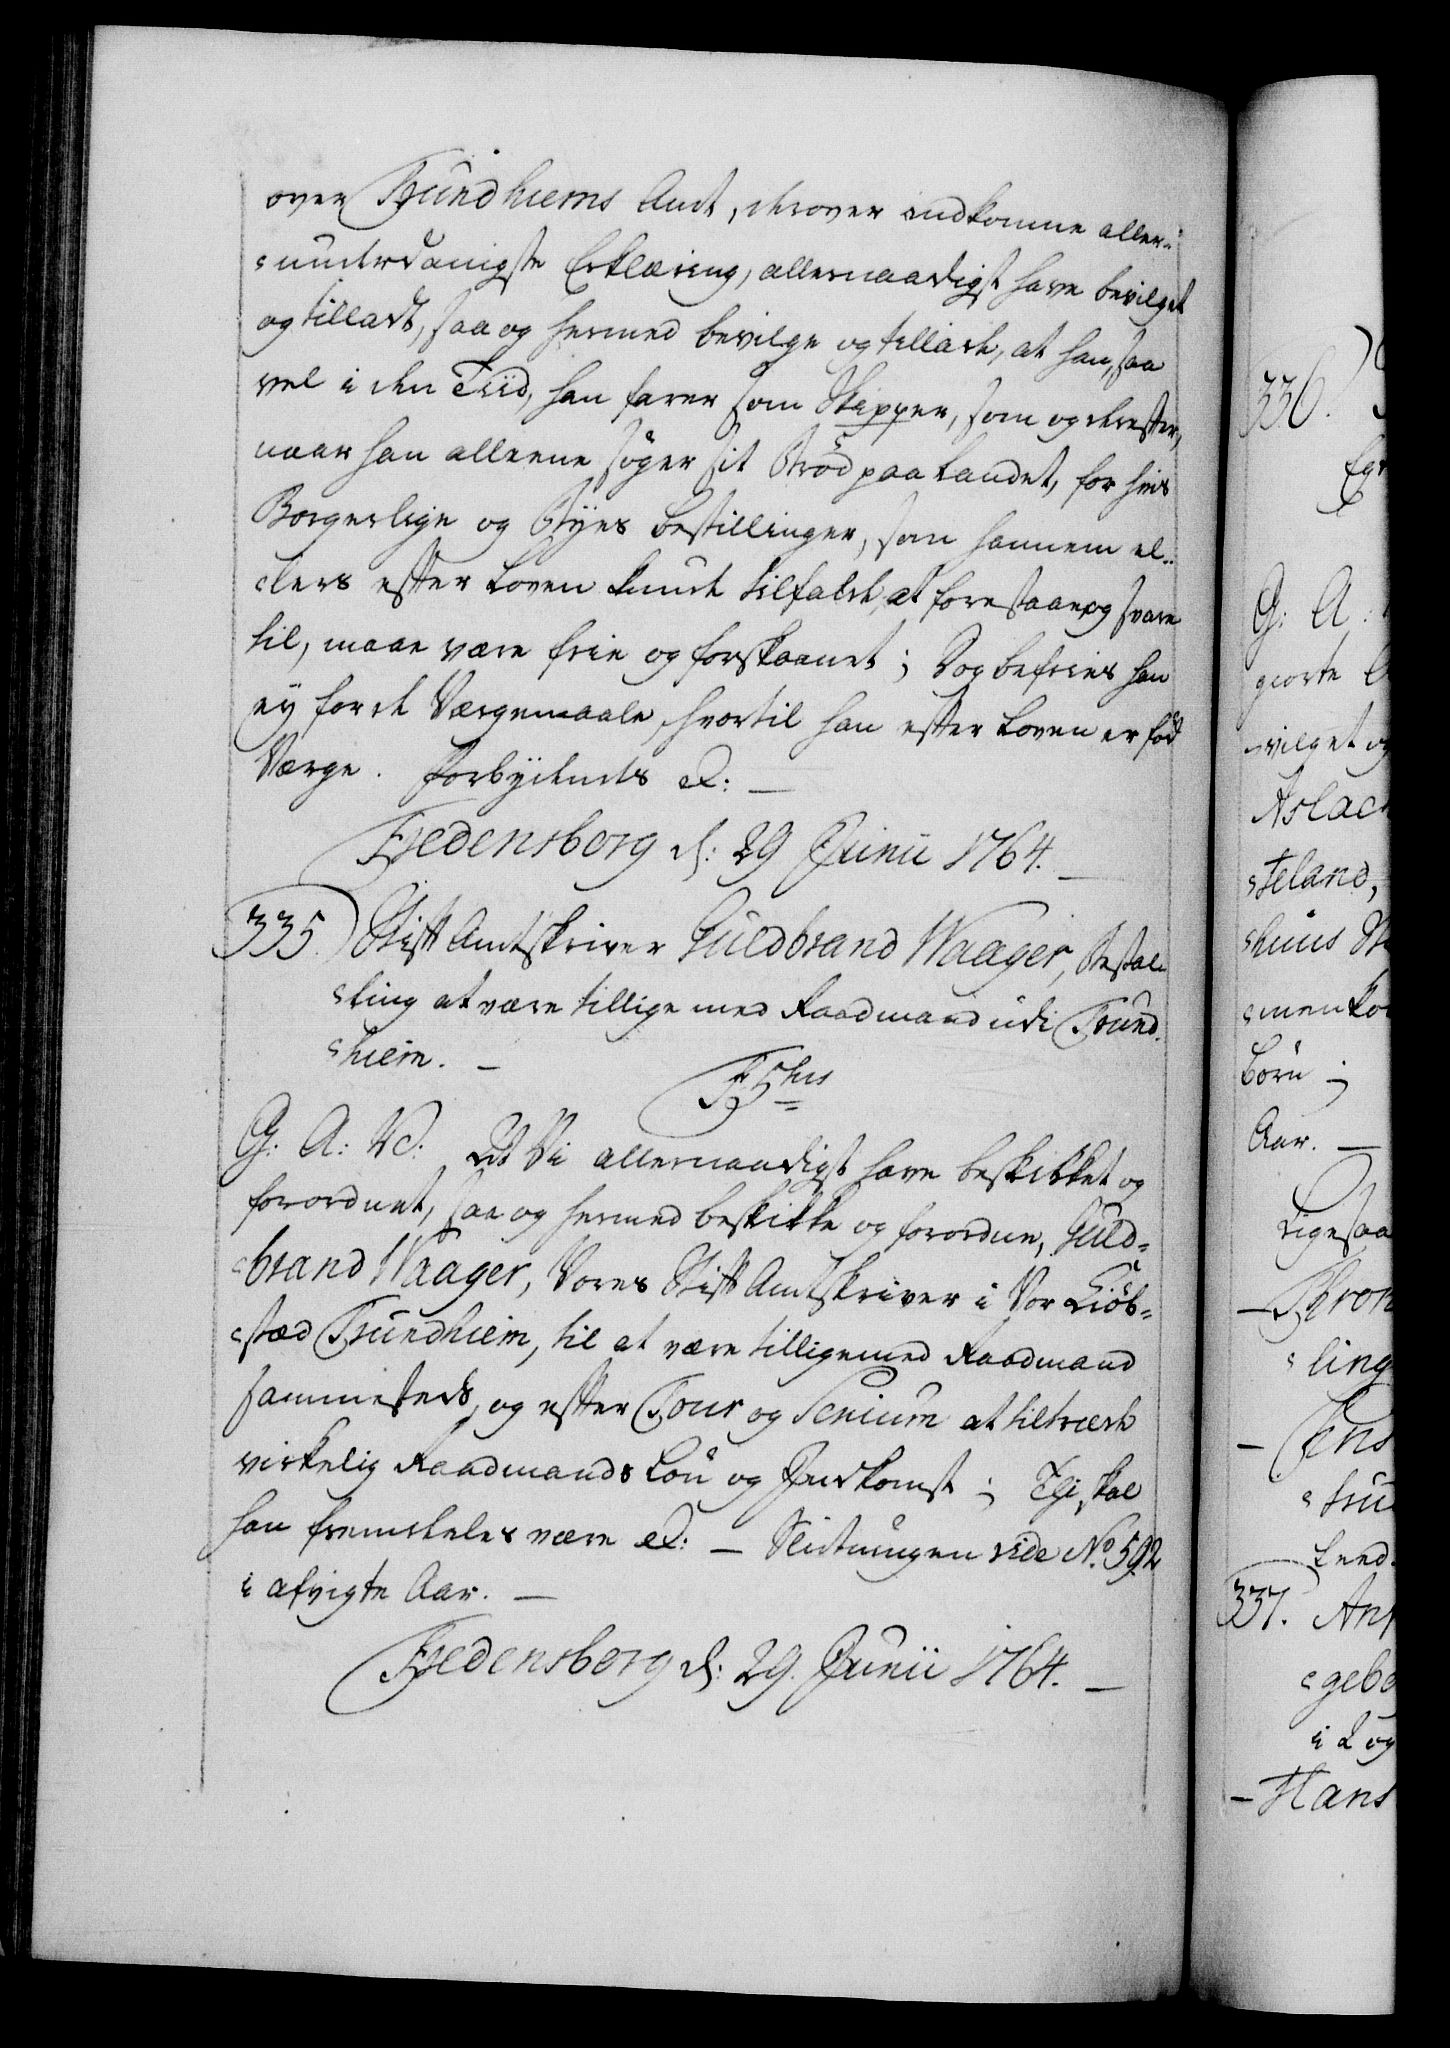 over Trundhiems Amt, derover indkomne aller-
underdanigste Erklæring, allernaadigst have bevilget
og tilladt, saa og hermed bevilge og tillade, at han, saa
vel i den Tiid, han farer som Skipper, som og derefter,
naar han alleene søger sit Brød paa Landet, for hvis
Borgerlige og Byes bestillinger, som hannem el-
lers efter Loven kunde tilfalde, at forestaae og svare
til, maae være frie og forskaanet; Dog befries han
ey for de Værgemaale, hvortil han efter Loven er fød
Værge. Forbydendes &:
Fredensborg d: 29 Junii 1764.
335. Stift Amtskriver Guldbrand Waager, Bestal-
ling at være tillige med Raadmand udi Trund-
hiem.
F 5tus
G: A: V: At Vi allernaadigst have beskikket og
forordnet, saa og hermed beskikke og forordne, Guld-
brand Waager, Vores Stift Amtskriver i Vor Kiøb-
stæd Trundhiem, til at være tilligemed Raadmand
sammesteds, og efter Tour og Senium at tiltræde
virkelig Raadmands Løn og Indkomst; Thi skal
han fremdeles være &: Slutningen vide No. 592
i afvigte Aar.
Fredensborg d: 29. Junii 1764.
336.
G: A:
giorte
vilget og
Aslach
steland,
huus
Børn;
Aar.
Ligesaa
ling
Jens
337.
i
Hans